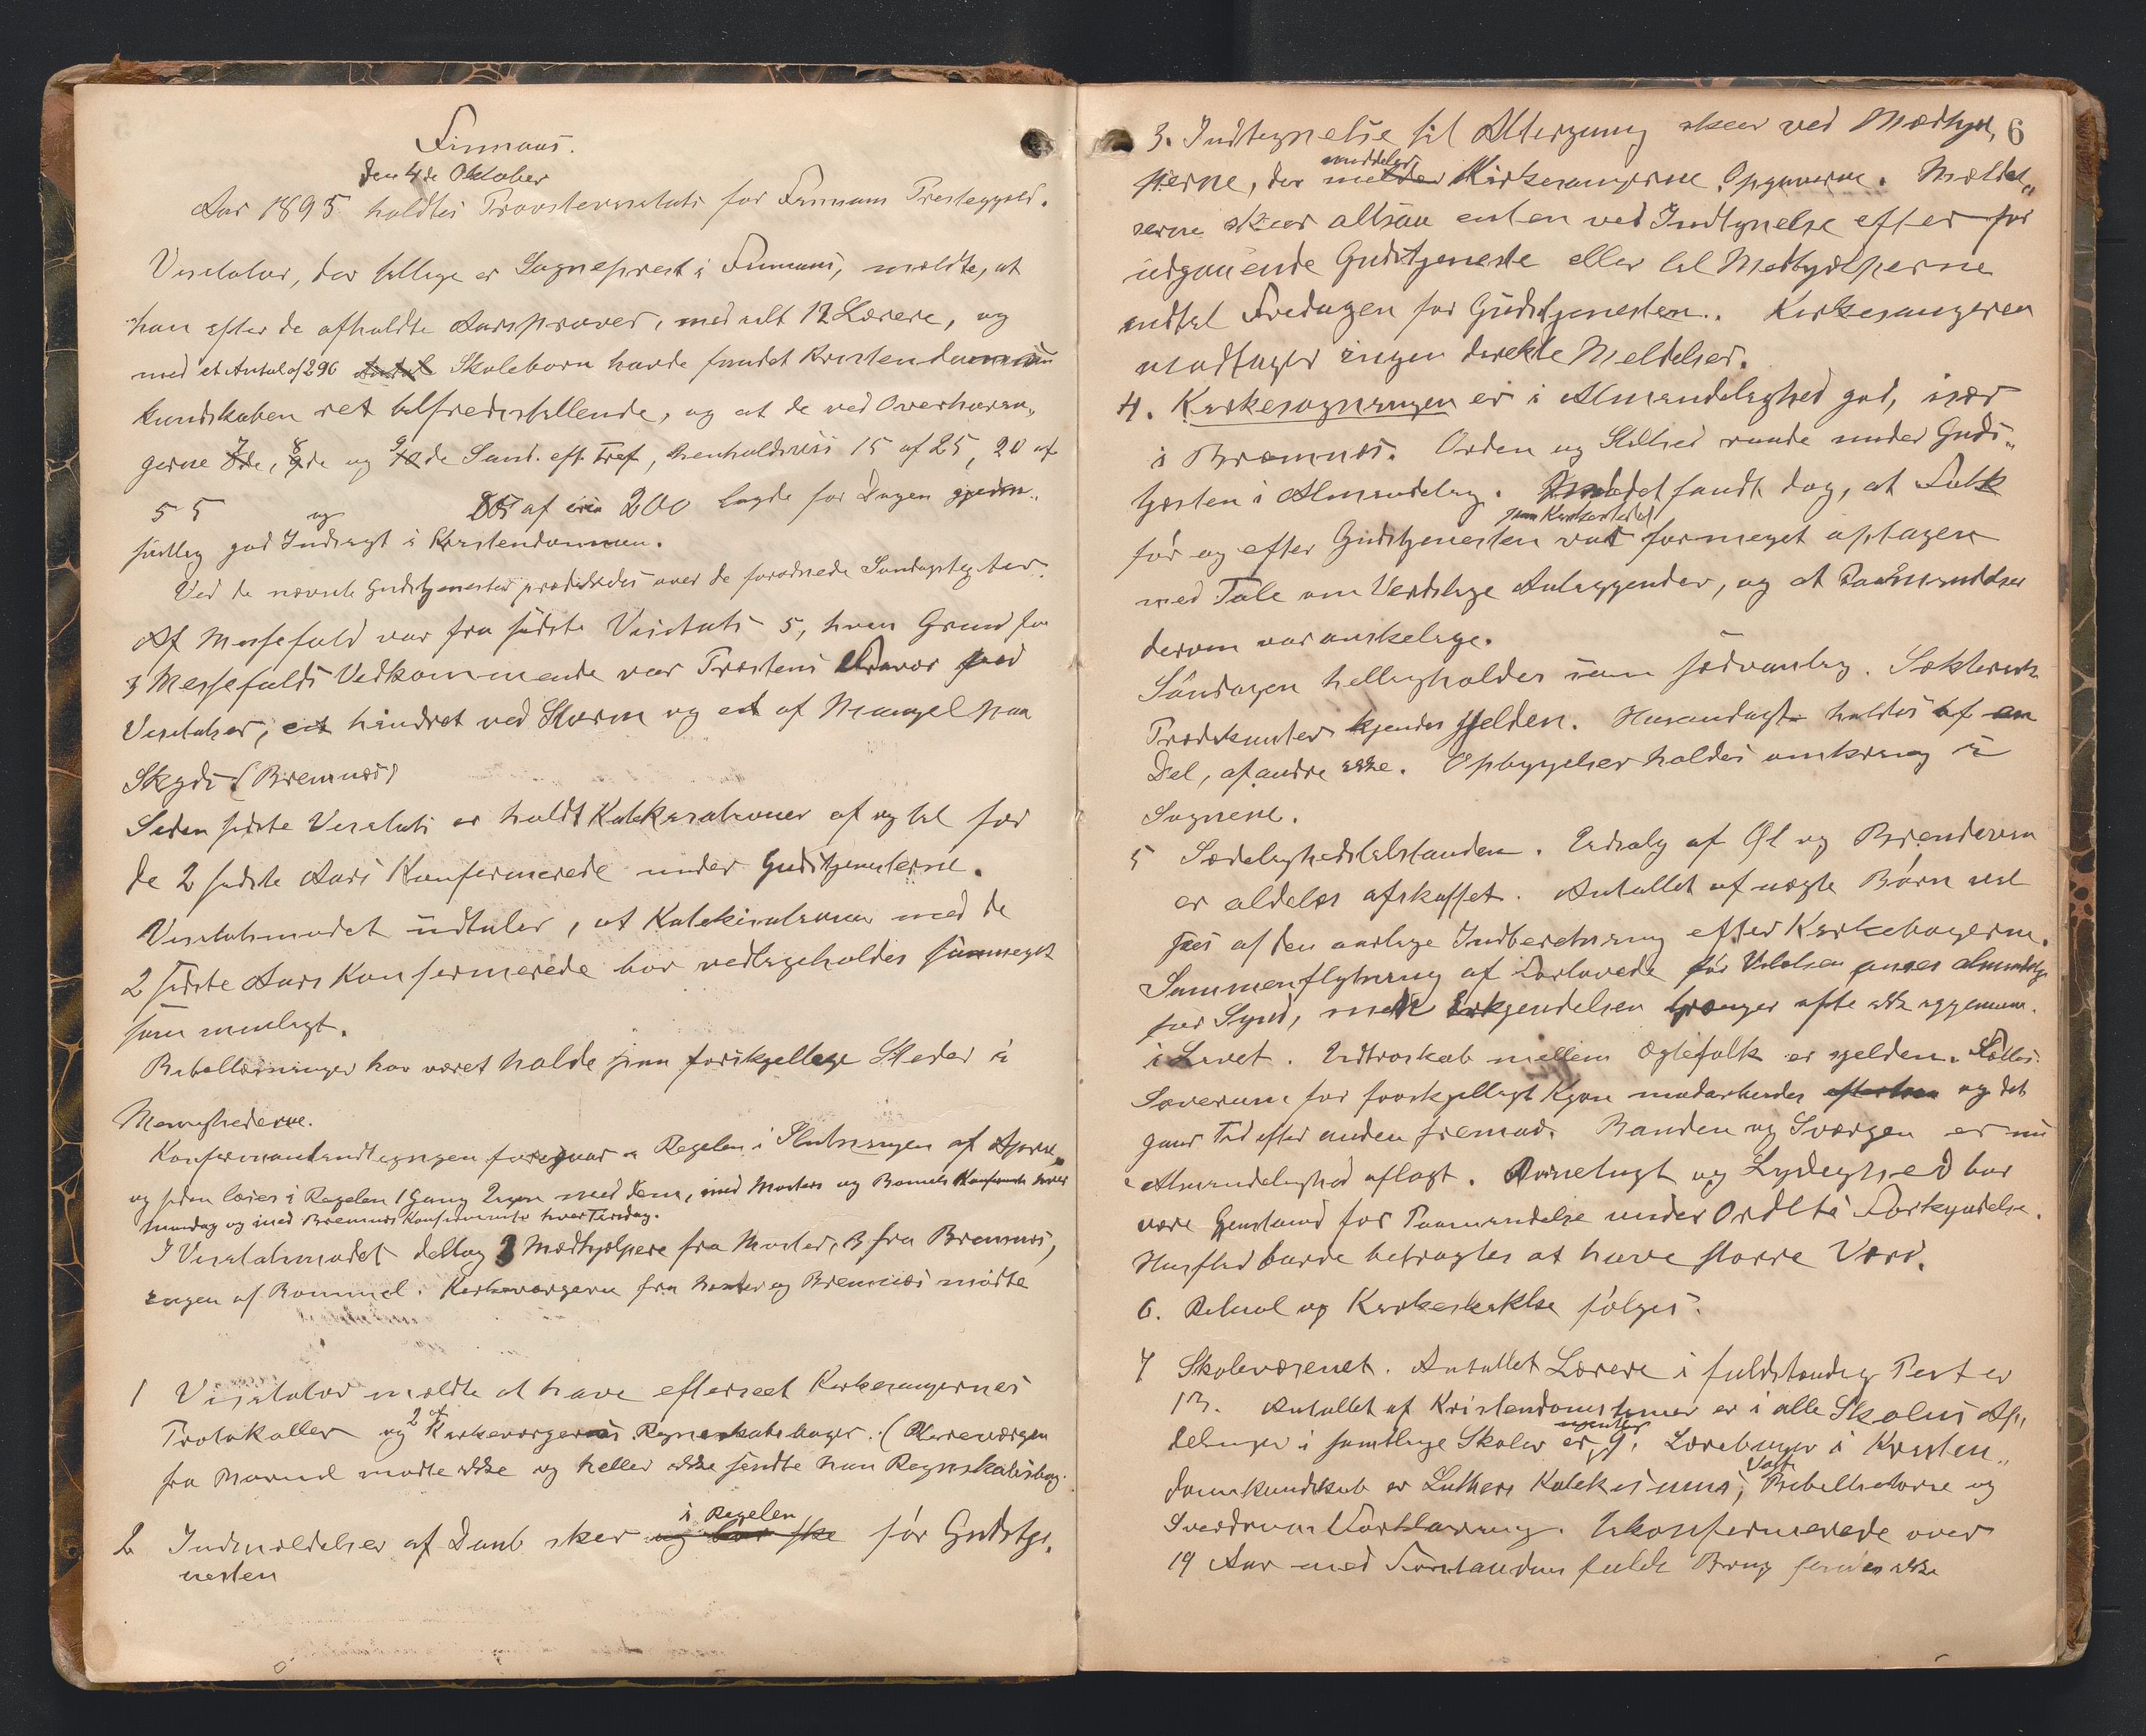 Finnaas.
den 4de Oktober
Aar 1895 holdtes Provstevisitats for Finnaas Prestegjeld.
Visitator, der tillige er Sogneprest i Finnaas, meldte, at
han efter de afholdte Aarsprøver, med alt 12 Lærere, og
med et Antal af 296 Antal Skolebørn havde fundet Kristendoms
kundskaben ret tilfredsstillende, og at de ved Overhørin„
gerne 7de, 8de og 9de Sønd. eft. Tref, henholdsvis 15 af 25, 20 af
55 85 af ca 200 lagde for Dagen gjenn„
sidig god og Indsigt i Kristendommen.
Ved de nævnte Gudstjenester prædikedes over de forordnede Søndagstexter.
Af Messefald var fra sidste Visitats 5, hvis Grund for
3 Messefalds Vedkommende var Prestens Fravær paa
Visitatser, et hindret ved Storm og et af Mangel paa
Skyds (Bremnæs)
Siden sidste Visitats er holdt Katekisationer af og til for
de 2 sidste Aars Konfirmerede under Gudstjenesterne.
Visitatsmødet udtaler, at Katekisationen med de
2 sidste Aars Konfirmerede bør vedligeholdes saameget
som muligt.
Bibellæsninger har været holdt paa forskjellige Steder i
Menighederne.
Konfirmantindtegningen foregaar i Regelen i Slutningen af April
og siden læses i Regelen 1 Gang Ugen med dem, med Mosters og Bømmels Konfirmanter hver
Mandag og med Bremnæs Konfirmanter hver Tirsdag.
I Visitatsmødet deltog 3 Medhjælpere fra Moster, 3 fra Bremnæs,
ingen af Bømmel. Kirkeværgerne fra Moster og Bremnæs mødte
1 Visitator meldte at have efterseet Kirkesangernes
Protokoller og 2 af Kirkeværgernes Regnskabsbøger. (Kirkeværgen
fra Bømmel mødte ikke og heller ikke sendte han Regnskabsbog.
2 Indmeldelser af Daab sker og bør ske i Regelen før Gudstje„
nesten
6
3. Indtegnelse til Altergang skeer ved Medhjæl„
perne, der melder meddeler Kirkesangerne Opgaverne. Meldel„
serne skeer altsaa enten ved Indtegnelse efter for
udgaaende Gudstjeneste eller til Medhjælperne
indtil Fredagen før Gudstjenesten. Kirkesangeren
modtager ingen direkte Meldelser.
4. Kirkesøgningen er i Almindelighed god, især
i Bremnæs. Orden og Stilhed raade under Guds„
tjesten i Almindelig. Mødet fandt dog, at Folk
før og efter Gudstjenesten paa Kirkestedet var for meget optagen
med Tale om Verdslige Anliggender, og at Paamindelser
derom var ønskelige.
Søndagen helligholdes som sædvanlig. Sekteriske
Prædikanter kjendes sjelden. Husandagt holdes af en
Del, af andre ikke. Opbyggelser holdes omkring i
Sognene.
5 Sædelighedstilstanden. Udsalg af Øl og Brændevin
er aldeles afskaffet. Antallet af uægte Børn vil
sees af den aarlige Indberetning efter Kirkebøgerne.
Sammenflytning af Forlovede før Vielsen anses almindelig
for Synd, men Erkjendelsen trænger ofte ikke iggjennem
i Livet. Utroskab mellem Ægtefolk er sjelden. Fælles
Soverum for forskjelligt Kjøn modarbeides efterhaa og det
gaar Tid efter anden fremad. Banden og Sværgen er nu
i Almindelighed aflagt. Børnetugt og Lydighed bør
være Gjenstand for Paamindelse under Ordets Forkyndelse.
Husflid burde betragtes at have større Værd.
6. Ritual og Kirkeskikke følges.
7 Skolevæsenet. Antallet Lærere i fuldstændig Post er
13. Antallet af Kristendomstimer er i alle Skolens Af„
delinger i samtlige Skoler er ugentlig 9. Lærebøger i Kristen„
domskundskab er Luthers Katekismus, Vogts Bibelhistorie og
Sverdrups Forklaring. Ukonfirmerede over
19 Aar med Forstandens fulde Brug findes ikke